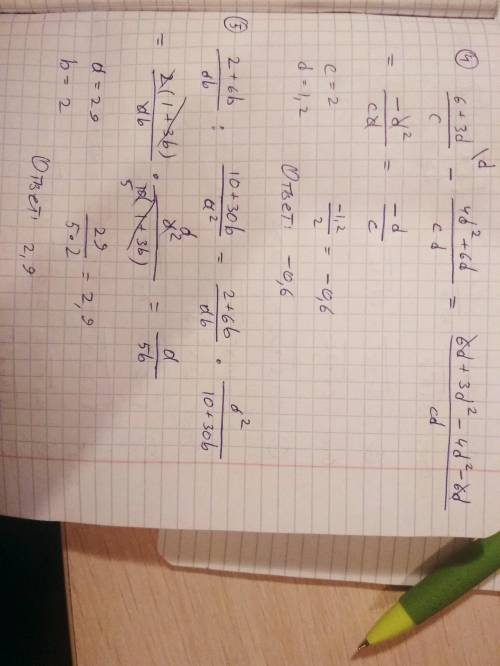 ④ (6+3d)/c \d − (4d²+6d)/(cd) = (6d+3d²−4d²−6d)/(cd)
= −d²/(cd) = −d/c
c=2
d=1,2
−1,2/2 = −0,6
Ответ: −0,6
⑤ (2+6b)/(db) : (10+30b)/d² = (2+6b)/(db) · d²/(10+30b)
= 2(1+3b)/(db) · d²/(10(1+3b)) d 5 = d/(5b)
d=29
b=2
29/(5·2) = 2,9
Ответ: 2,9